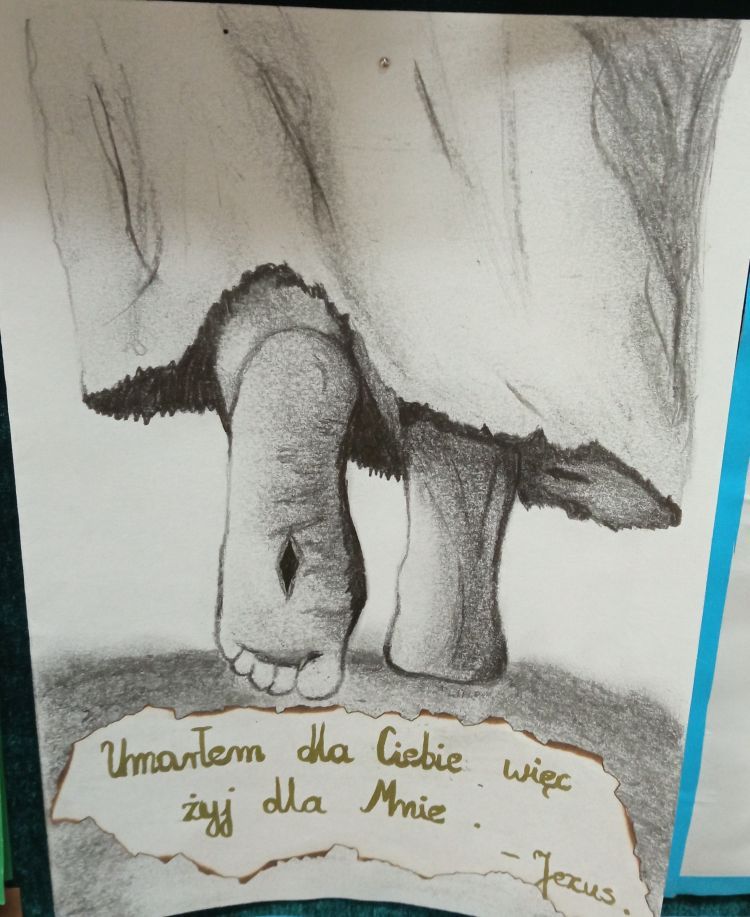 Umarłem dla Ciebie więc
żyj dla Mnie.
- Jezus.